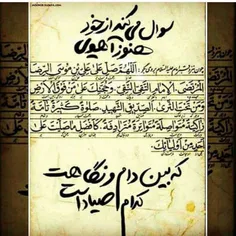 سوال می‌کند از خود
هنوز آهویی
اللّهُمَّ صَلِّ عَلی عَلِیِّ بْنِ مُوسَی الرِّضَا
الْمُرْتَضَی الْاِمامِ التَّقِیِّ النَّقِیِّ وَ حُجَّتِکَ عَلی مَنْ فَوْقَ الْاَرْضِ
وَ مَنْ تَحْتَ الثَّری الصِّدّیقِ الشَّهیدِ صَلوةً کَثیرَةً تآمَّةً
زاکِیَةً مُتَواصِلَةً مُتَواتِرَةً مُتَرادِفَةً کَاَفْضَلِ ما صَلَّیْتَ عَلی
اَحَدٍ مِنْ اَوْلِیائِکَ
که بین دام و نگاهت
کدام صیاد است